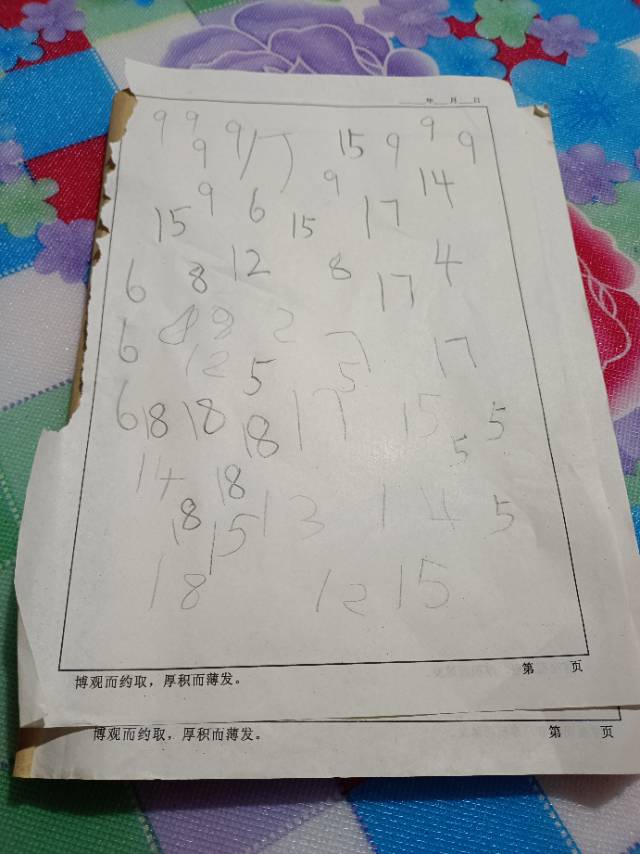 年 月 日
9 9 9 9 17 15 9 9 9
15 9 6 15 9 17 14
6 8 12 8 17 4
6 8 9 2 17
12 5 5
6 18 18 18 17 15 5 5
14 18
18 15 13 14 5
18 12 15
第 页
博观而约取，厚积而薄发。
博观而约取，厚积而薄发。 第 页